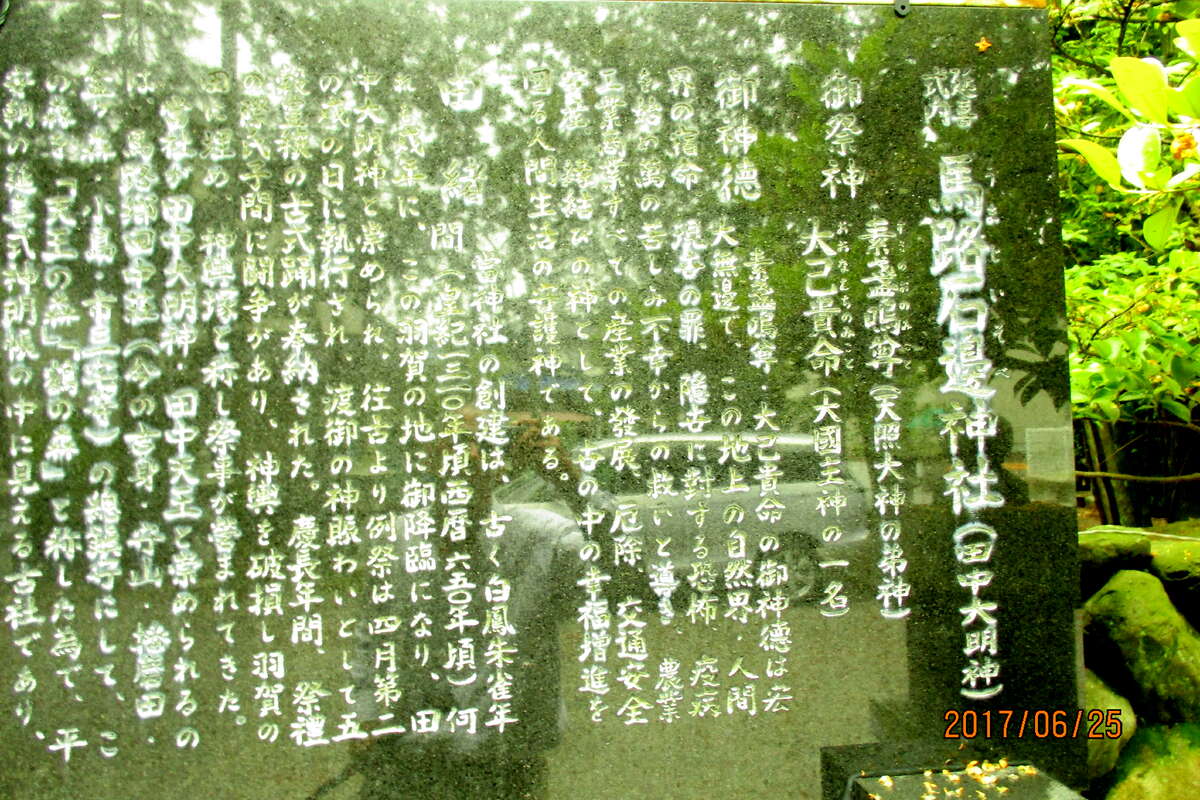 延喜式内 馬路石邊神社(田中大明神)
御祭神 素盞嗚尊(天照大神の弟神)
大己貴命(大國主神の一名)
御神德 素盞嗚尊・大己貴命の御神德は広
大無辺で この地上の自然界・人間
界の宿命 現在の罪 隠世に對する恐怖 疫病
を始め萬の苦しみ不幸からの救いと導き、農業
工業商業すべての産業の發展、厄除 交通安全
安産 縁結びの神として、世の中の幸福増進を
図る人間生活の守護神である。
由緒 當神社の創建は、古く白鳳朱雀年
間(皇紀一三一〇年頃西暦六五〇年頃)何
れも戌年に、この羽賀の地に御降臨になり、田
中大明神と崇められ、往古より例祭は四月第二
の戌の日に執行され、渡御の神賑わいとして五
穀豊穣の古式踊が奉納された。慶長年間、祭禮
の際氏子間に闘争があり、神輿を破損し羽賀の
田に埋め、神輿塚と称し祭事が営まれてきた。
當社が田中大明神・田中天王と崇められるの
は、馬路郷田中庄(今の吉身・守山・播磨田・
小島・市三宅等)の總鎮守にして、こ
の森を「天王の森」「額の森」と称した為で、平
安朝の延喜式神明帳の中に見える古社であり、
2017/06/25